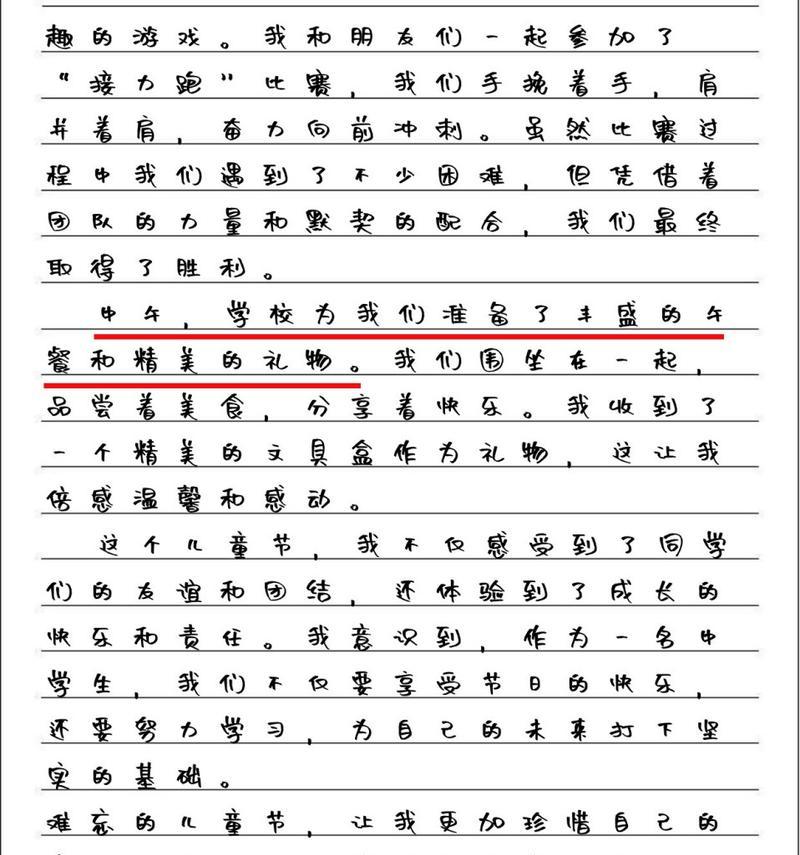 趣的游戏。我和朋友们一起参加了
“接力跑”比赛，我们手挽着手，肩
并着肩，奋力向前冲刺。虽然比赛过
程中我们遇到了不少困难，但凭借着
团队的力量和默契的配合，我们最终
取得了胜利。
中午，学校为我们准备了丰盛的午
餐和精美的礼物。我们围坐在一起，
品尝着美食，分享着快乐。我收到了
一个精美的文具盒作为礼物，这让我
倍感温馨和感动。
这个儿童节，我不仅感受到了同学
们的友谊和团结，还体验到了成长的
快乐和责任。我意识到，作为一名中
学生，我们不仅要享受节日的快乐，
还要努力学习，为自己的未来打下坚
实的基础。
难忘的儿童节，让我更加珍惜自己的